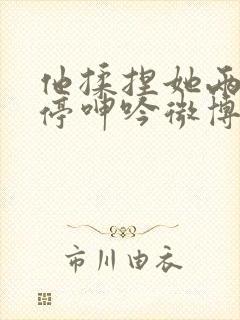 他揉捏她两
停呻吟微博
市川由衣